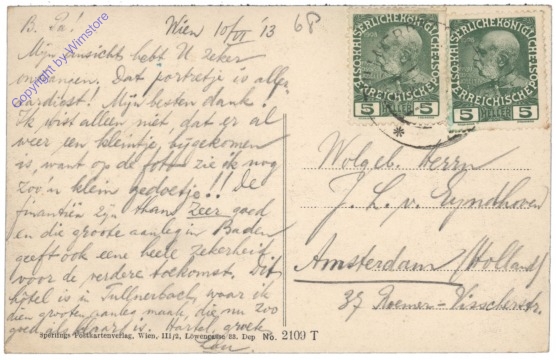 B. Pa!
Wien 10/VI 13
68
Mijn ansicht hebt U zeker
ontvangen. Dat portretje is aller
aardigst! Mijn besten dank!
Ik wist alleen niet, dat er al
weer een kleintje bijgekomen
is, want op de foto zie ik nog
zoo'n klein gedoetje!!! De
financiën zijn thans Zeer goed
en die groote aanleg in Baden
geeft ook eene heele zekerheid
voor de verdere toekomst. Dit
hôtel is in Tullnerbach, waar ik
dien grooten aanleg maak, die nu zoo
goed als klaar is. Hartel. groet
Lou.
KAISERLICHEKÖNIGLICHE
ÖSTERREICHISCHE
5 HELLER 5
KAISERLICHEKÖNIGLICHE
ÖSTERREICHISCHE
5 HELLER 5
Wolgeb. Herrn
J. L. v. Eyndhoven
Amsterdam / Holland
37 Roemer-Visscherstr.
Sperlings Postkartenverlag, Wien, III/2, Löwengasse 28. Dep No. 2109 T
Copyright by Wimstore